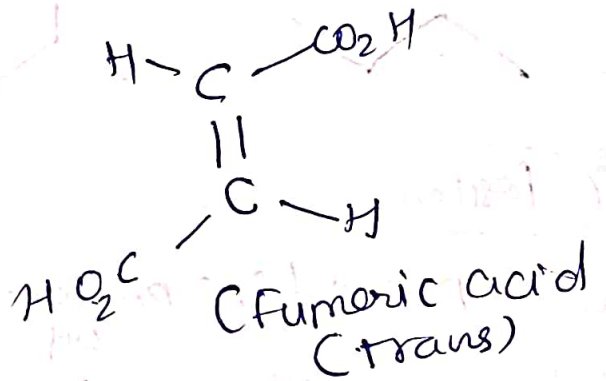 H C CO2H
C H
HO2C
(Fumeric acid
(trans)